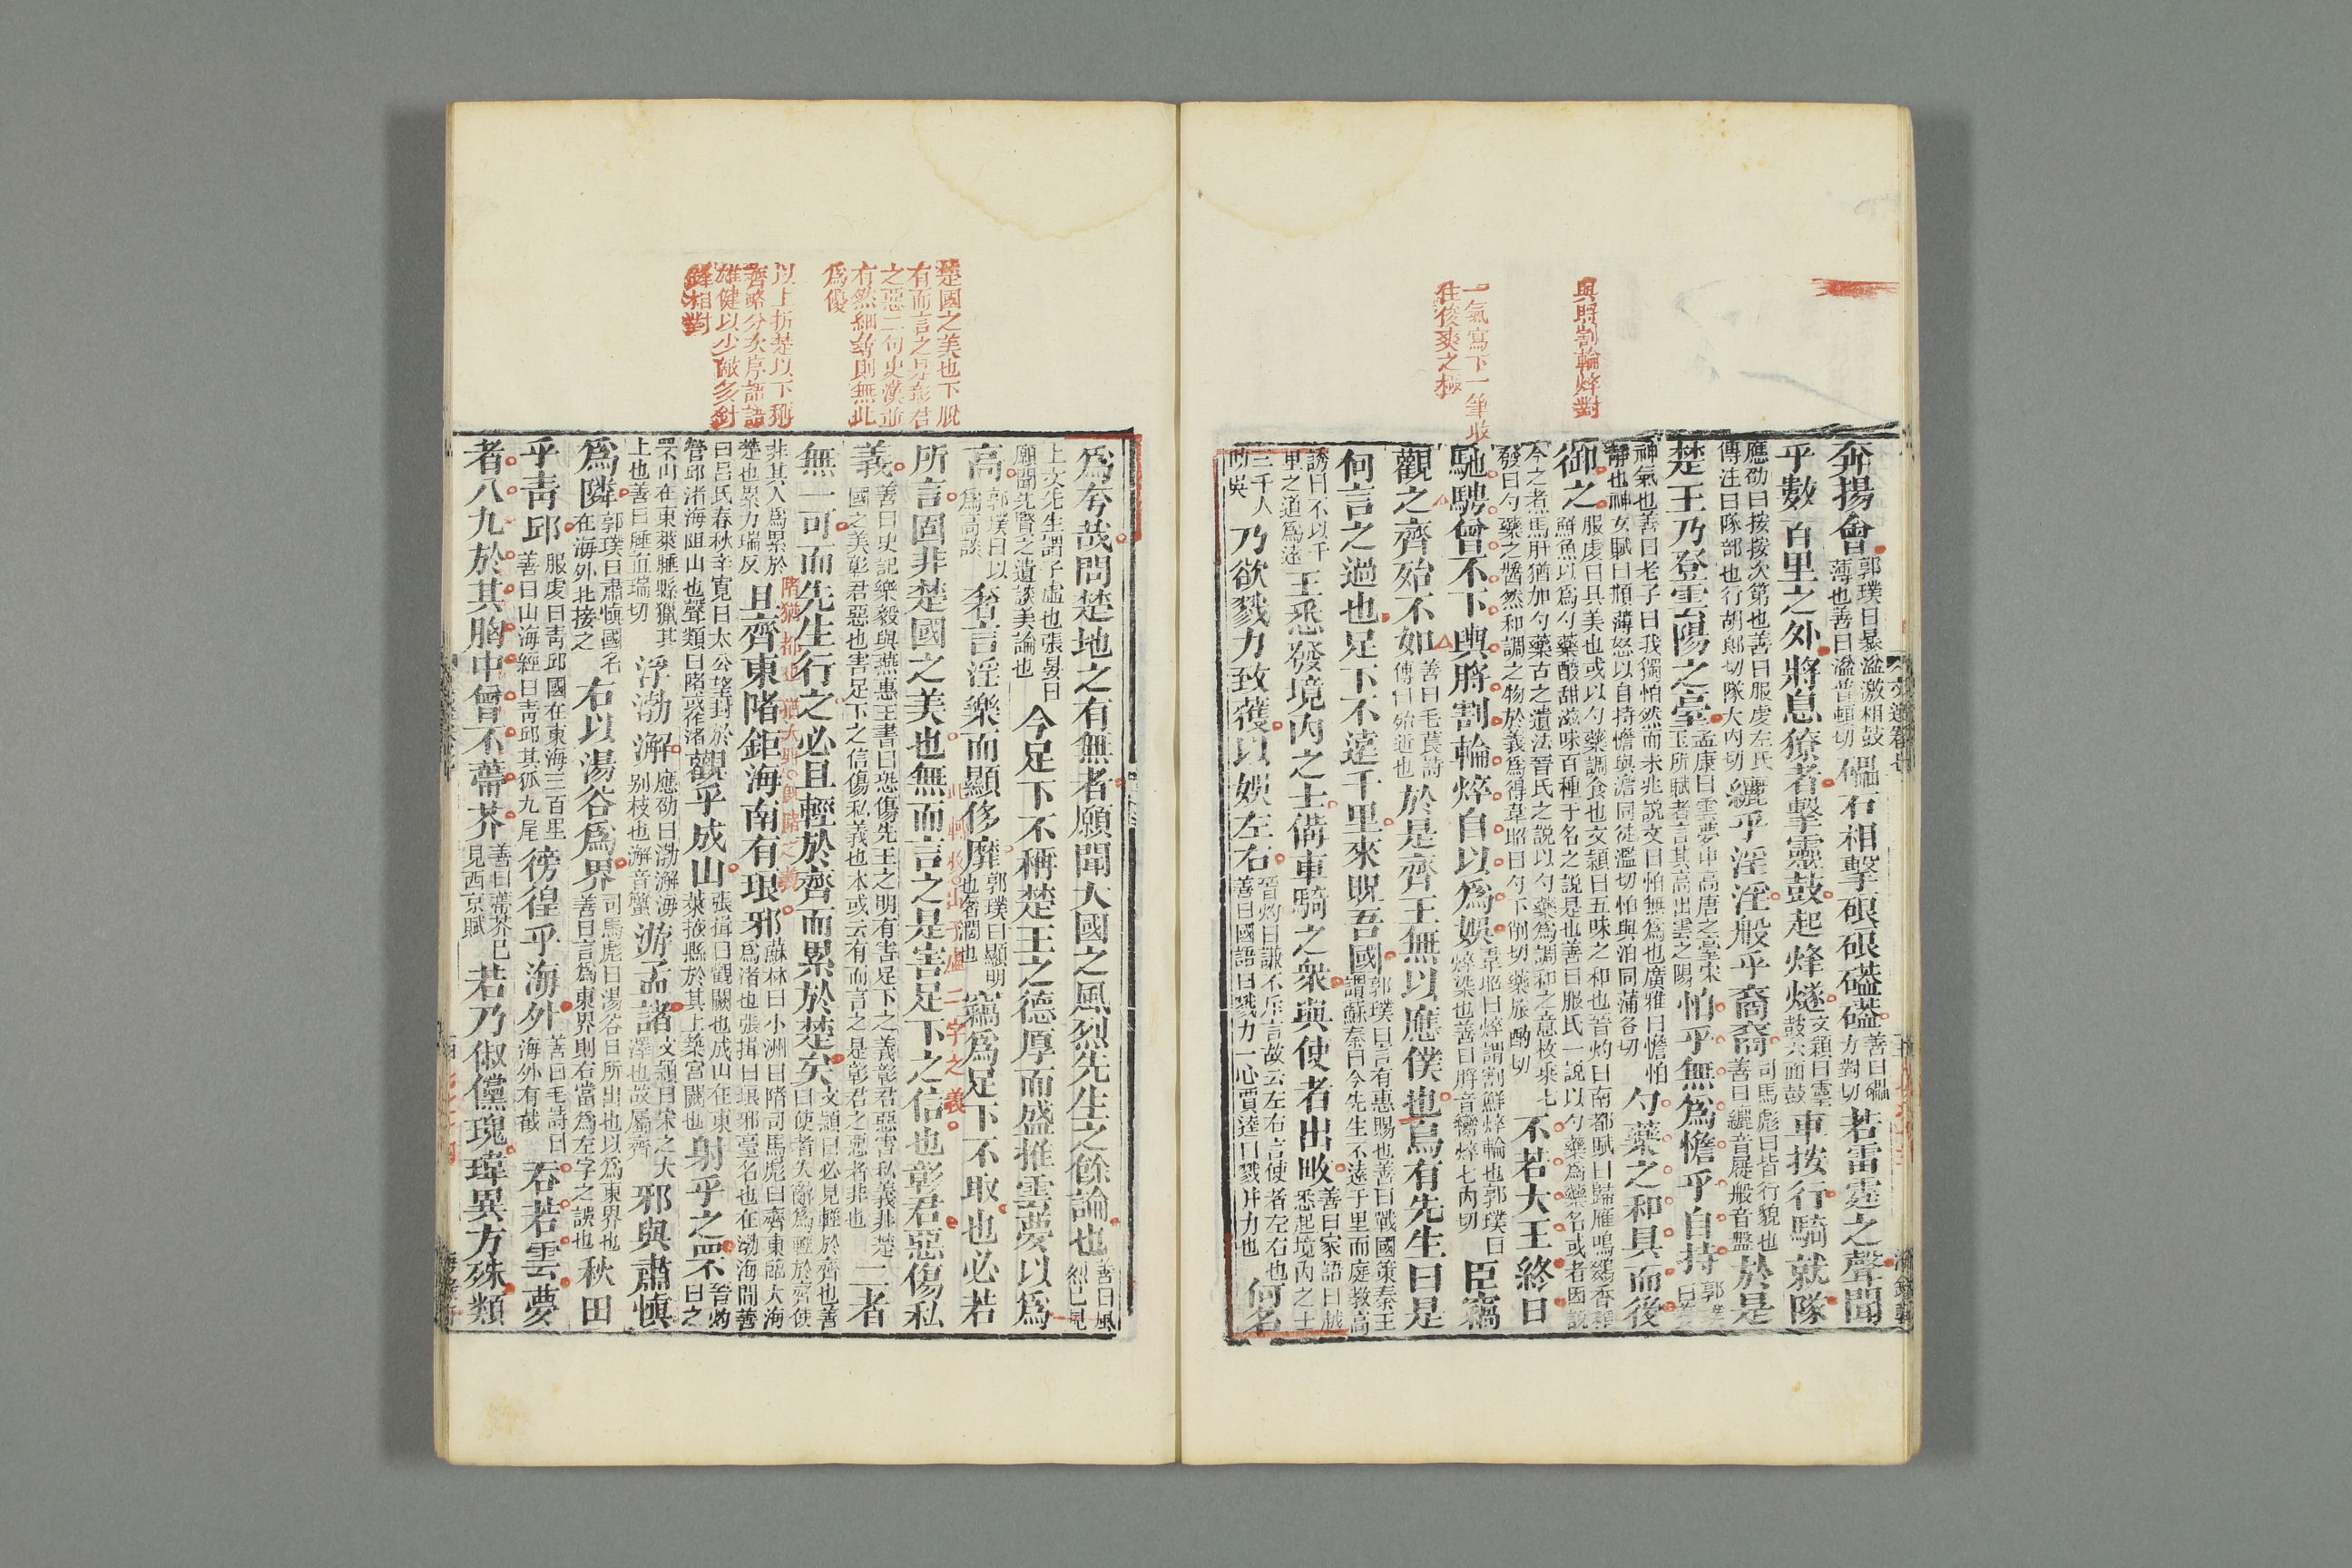 與將割輪焠對
一氣寫下一筆收
住俊爽之極
奔揚會郭璞曰暴溢激相鼓薄也善曰溢普頓切礧石相擊硠硠礚礚善曰礧力對切若雷霆之聲聞
乎數百里之外將息獠者擊靈鼓起烽燧文穎曰靈鼓六面鼓車按行騎就隊
應劭曰按按次第也善曰服虔左氏傳注曰隊部也行胡郎切隊大内切纚乎淫淫般乎裔裔司馬彪曰皆行貌也善曰纚音屣般音盤於是
楚王乃登雲陽之臺孟康曰雲夢中高唐之臺宋玉所賦者言其高出雲之陽怕乎無爲憺乎自持郭璞曰養
神氣也善曰老子曰我獨怕然而未兆説文曰怕無爲也廣雅曰憺怕靜也神女賦曰頩薄怒以自持憺與澹同徒濫切怕與泊同蒲各切勺藥之和具而後
御之服虔曰具美也或以勺藥調食也文穎曰五味之和也晉灼曰南都賦曰歸雁鳴鵽香稻鮮魚以爲勺藥酸甜滋味百種千名之説是也善曰服氏一説以勺藥爲藥名或者因説
今之煮馬肝猶加勺藥古之遺法晉氏之説以勺藥爲調和之意枚乘七發曰勺藥之醬然和調之物於義爲得韋昭曰勺丁削切藥旅酌切不若大王終日
馳騁曾不下輿脟割輪焠自以爲娛韋昭曰焠謂割鮮焠輪也郭璞曰焠染也善曰脟音臠焠七内切臣竊
觀之齊殆不如善曰毛萇詩傳曰殆近也於是齊王無以應僕也烏有先生曰是
何言之過也足下不遠千里來貺吾國郭璞曰言有惠賜也善曰戰國策秦王謂蘇秦曰今先生不遠千里而庭教高
誘曰不以千里之道爲遠王悉發境内之士備車騎之衆與使者出畋善曰家語曰越悉起境内之士
三千人助吳乃欲戮力致獲以娛左右晉灼曰謙不斥言故云左右言使者左右也善曰國語曰戮力一心賈逵曰戮并力也何名
楚國之美也下脫
有而言之是彰君
之惡二句史漢並
有然細尋則無此
爲優
以上折楚以下稱
齊略分次序語語
雄健以少敵多針
鋒相對
爲夸哉問楚地之有無者願聞大國之風烈先生之餘論也善曰風烈已見
上文先生謂子虛也張晏曰願聞先賢之遺談美論也今足下不稱楚王之德厚而盛推雲夢以爲
高郭璞曰以爲高談奢言淫樂而顯侈靡郭璞曰顯明也奢濶也竊爲足下不取也必若
此轉收出子虛二字之義
所言固非楚國之美也無而言之是害足下之信也彰君惡傷私
義善曰史記樂毅與燕惠王書曰恐傷先王之明有害足下之義彰君惡害私義非楚國之美彰君惡也害足下之信傷私義也本或云有而言之是彰君之惡者非也二者
無一可而先生行之必且輕於齊而累於楚矣文穎曰必見輕於齊也善曰使者失辭爲輕於齊使
陼猶都也猶大野曰陼之義
非其人爲累於楚也累力瑞反且齊東陼鉅海南有琅邪蘇林曰小洲曰陼司馬彪曰齊東臨大海爲渚也張揖曰琅邪臺名也在渤海間善
曰呂氏春秋辛寬曰太公望封於營邱渚海阻山也聲類曰陼或作渚觀乎成山張揖曰觀闕也成山在東萊掖縣於其上築宮闕也射乎之罘晉灼曰之
罘山在東萊腄縣獵其上也善曰腄直瑞切浮渤澥應劭曰渤澥海别枝也澥音蟹游孟諸文穎曰宋之大澤也故屬齊邪與肅愼
爲隣郭璞曰肅愼國名在海外北接之右以湯谷爲界司馬彪曰湯谷日所出也以爲東界也善曰言爲東界則右當爲左字之誤也秋田
乎靑邱服虔曰靑邱國在東海三百里善曰山海經曰靑邱其狐九尾徬徨乎海外善曰毛詩曰海外有截吞若雲夢
者八九於其胸中曾不蔕芥善曰蔕芥已見西京賦若乃俶儻瑰瑋異方殊類